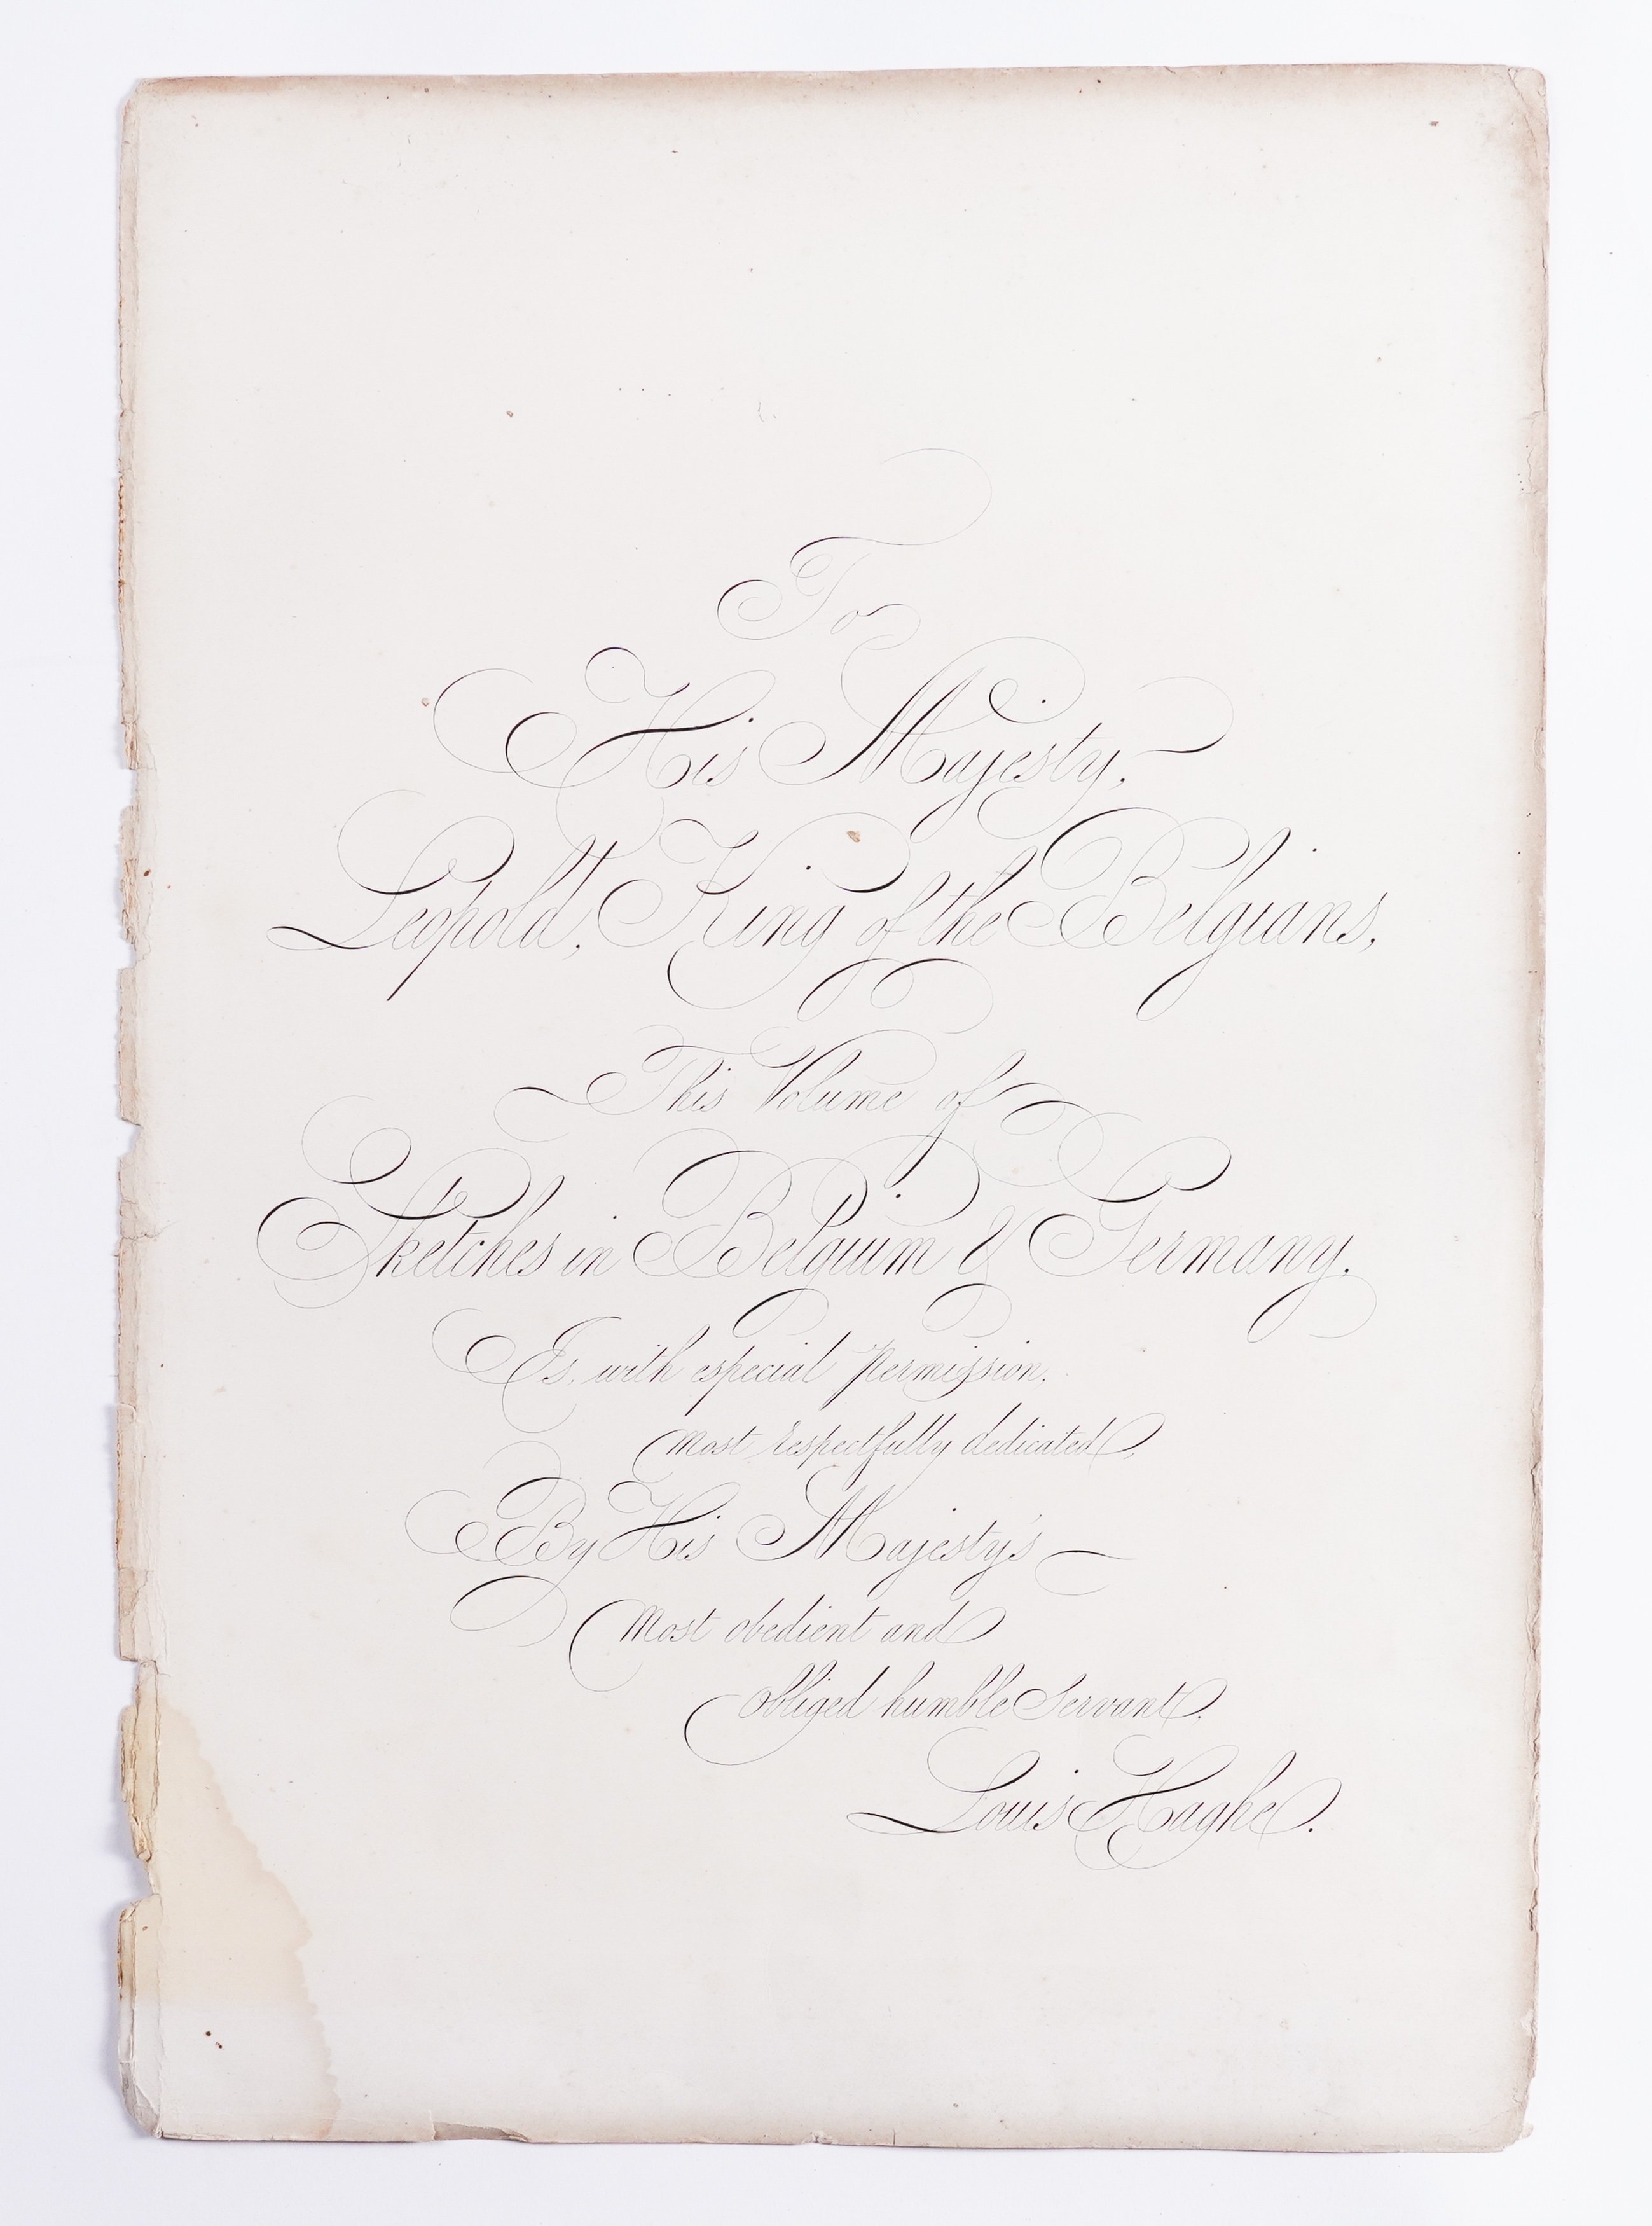 To
His Majesty,
Leopold, King of the Belgians,
This Volume of
Sketches in Belgium & Germany.
Is, with especial permission,
most respectfully dedicated,
By His Majesty's
most obedient and
obliged humble Servant.
Louis Haghe.